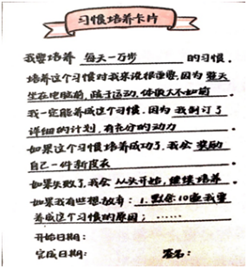 习惯培养卡片
我要培养 每天一万步 的习惯.
培养这个习惯对我来说很重要,因为 整天
坐在电脑前,疏于运动,体能大不如前
我一定能养成这个习惯.因为 我制订了
详细的计划,有充分的动力
如果这个习惯培养成功了,我会 奖励
自己一件新皮衣
如果失败了,我会 从头开始,继续培养.
如果我有些想放弃:1.默念10遍我要
养成这个习惯的原因; ......
开始日期:
完成日期: 签名: